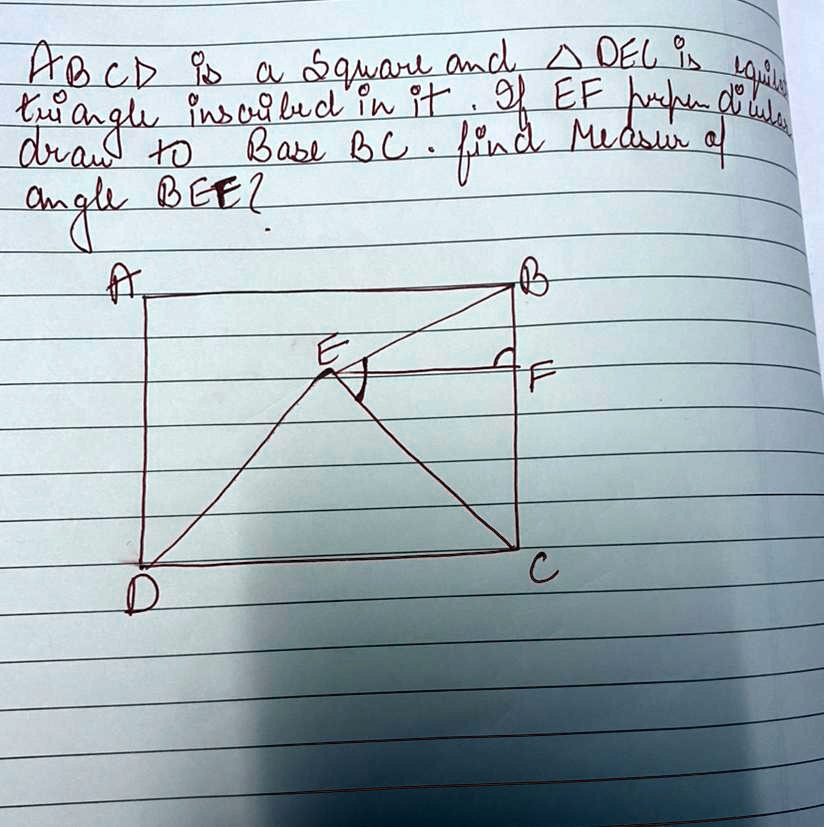 ABCD is a Square and △ DEC is equila
triangle inscribed in it. If EF perpendicular
draw to Base BC. find Measur of
angle BEF?
A
B
E
F
D
C